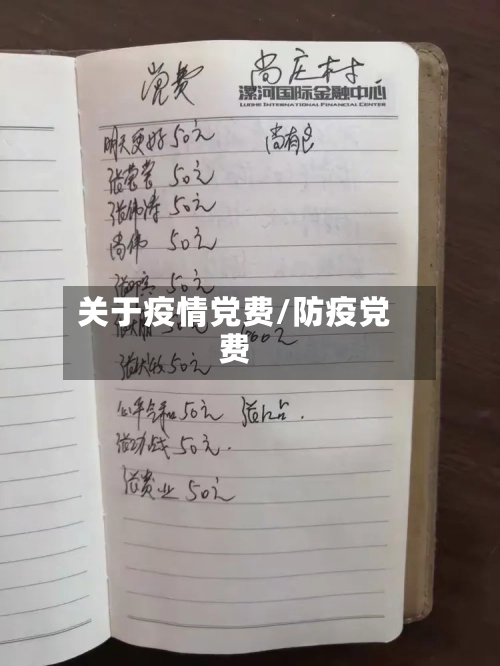 党费 尚庄村
漯河国际金融中心
LUOHE INTERNATIONAL FINANCIAL CENTER
明天更好 50元 尚有良
张荣荣 50元
张伟涛 50元
尚伟 50元
50元
关于疫情党费/防疫党
费
50元
心平气和 50元
张功战 50元.
张贵业 50元